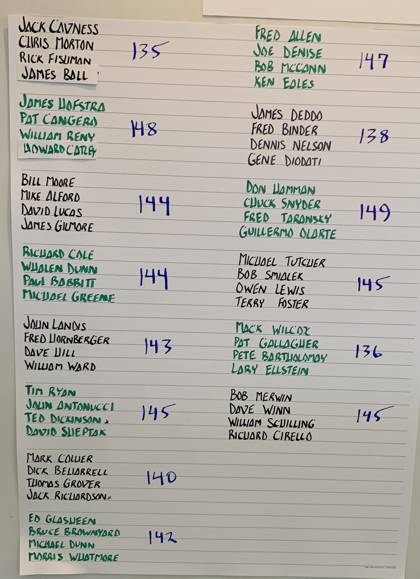 JACK CAVNESS
CHRIS MORTON
RICK FISHMAN
JAMES BALL
135
JAMES HOFSTRA
PAT CANGERO
WILLIAM RENY
HOWARD CATLEY
148
BILL MOORE
MIKE ALFORD
DAVID LUCAS
JAMES GILMORE
144
RICHARD COLE
WHALEN DUNN
PAUL BABBITT
MICHAEL GREENE
144
JOHN LANDIS
FRED HORNBERGER
DAVE HILL
WILLIAM WARD
143
TIM RYAN
JOHN ANTONUCCI
TED DICKINSON
DAVID SHEPTAK
145
MARK COLLIER
DICK BELLARRELL
THOMAS GROVER
JACK RICHARDSON
140
ED GLASHEEN
BRUCE BROWNYARD
MICHAEL DUNN
MORRIS WHATMORE
142
FRED ALLEN
JOE DENISE
BOB MCCANN
KEN EALES
147
JAMES DEDDO
FRED BINDER
DENNIS NELSON
GENE DIODATI
138
DON HAMMAN
CHUCK SNYDER
FRED TARANSKY
GUILLERMO OLARTE
149
MICHAEL TUTCHER
BOB SMIALEK
OWEN LEWIS
TERRY FOSTER
145
MACK WILCOX
PAT GALLAGHER
PETE BARTHOLOMAY
LARY ELLSTEIN
136
BOB MERWIN
DAVE WINN
WILLIAM SCHILLING
RICHARD CIRELLO
145